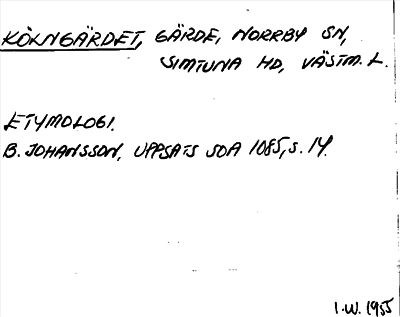 KÖLNGÄRDET, GÄRDE, NORRBY SN,
SIMTUNA HD, VÄSTM. L.
ETYMOLOGI.
B. JOHANSSON, UPPSATS SOA 1085, S. 14.
I.W. 1955